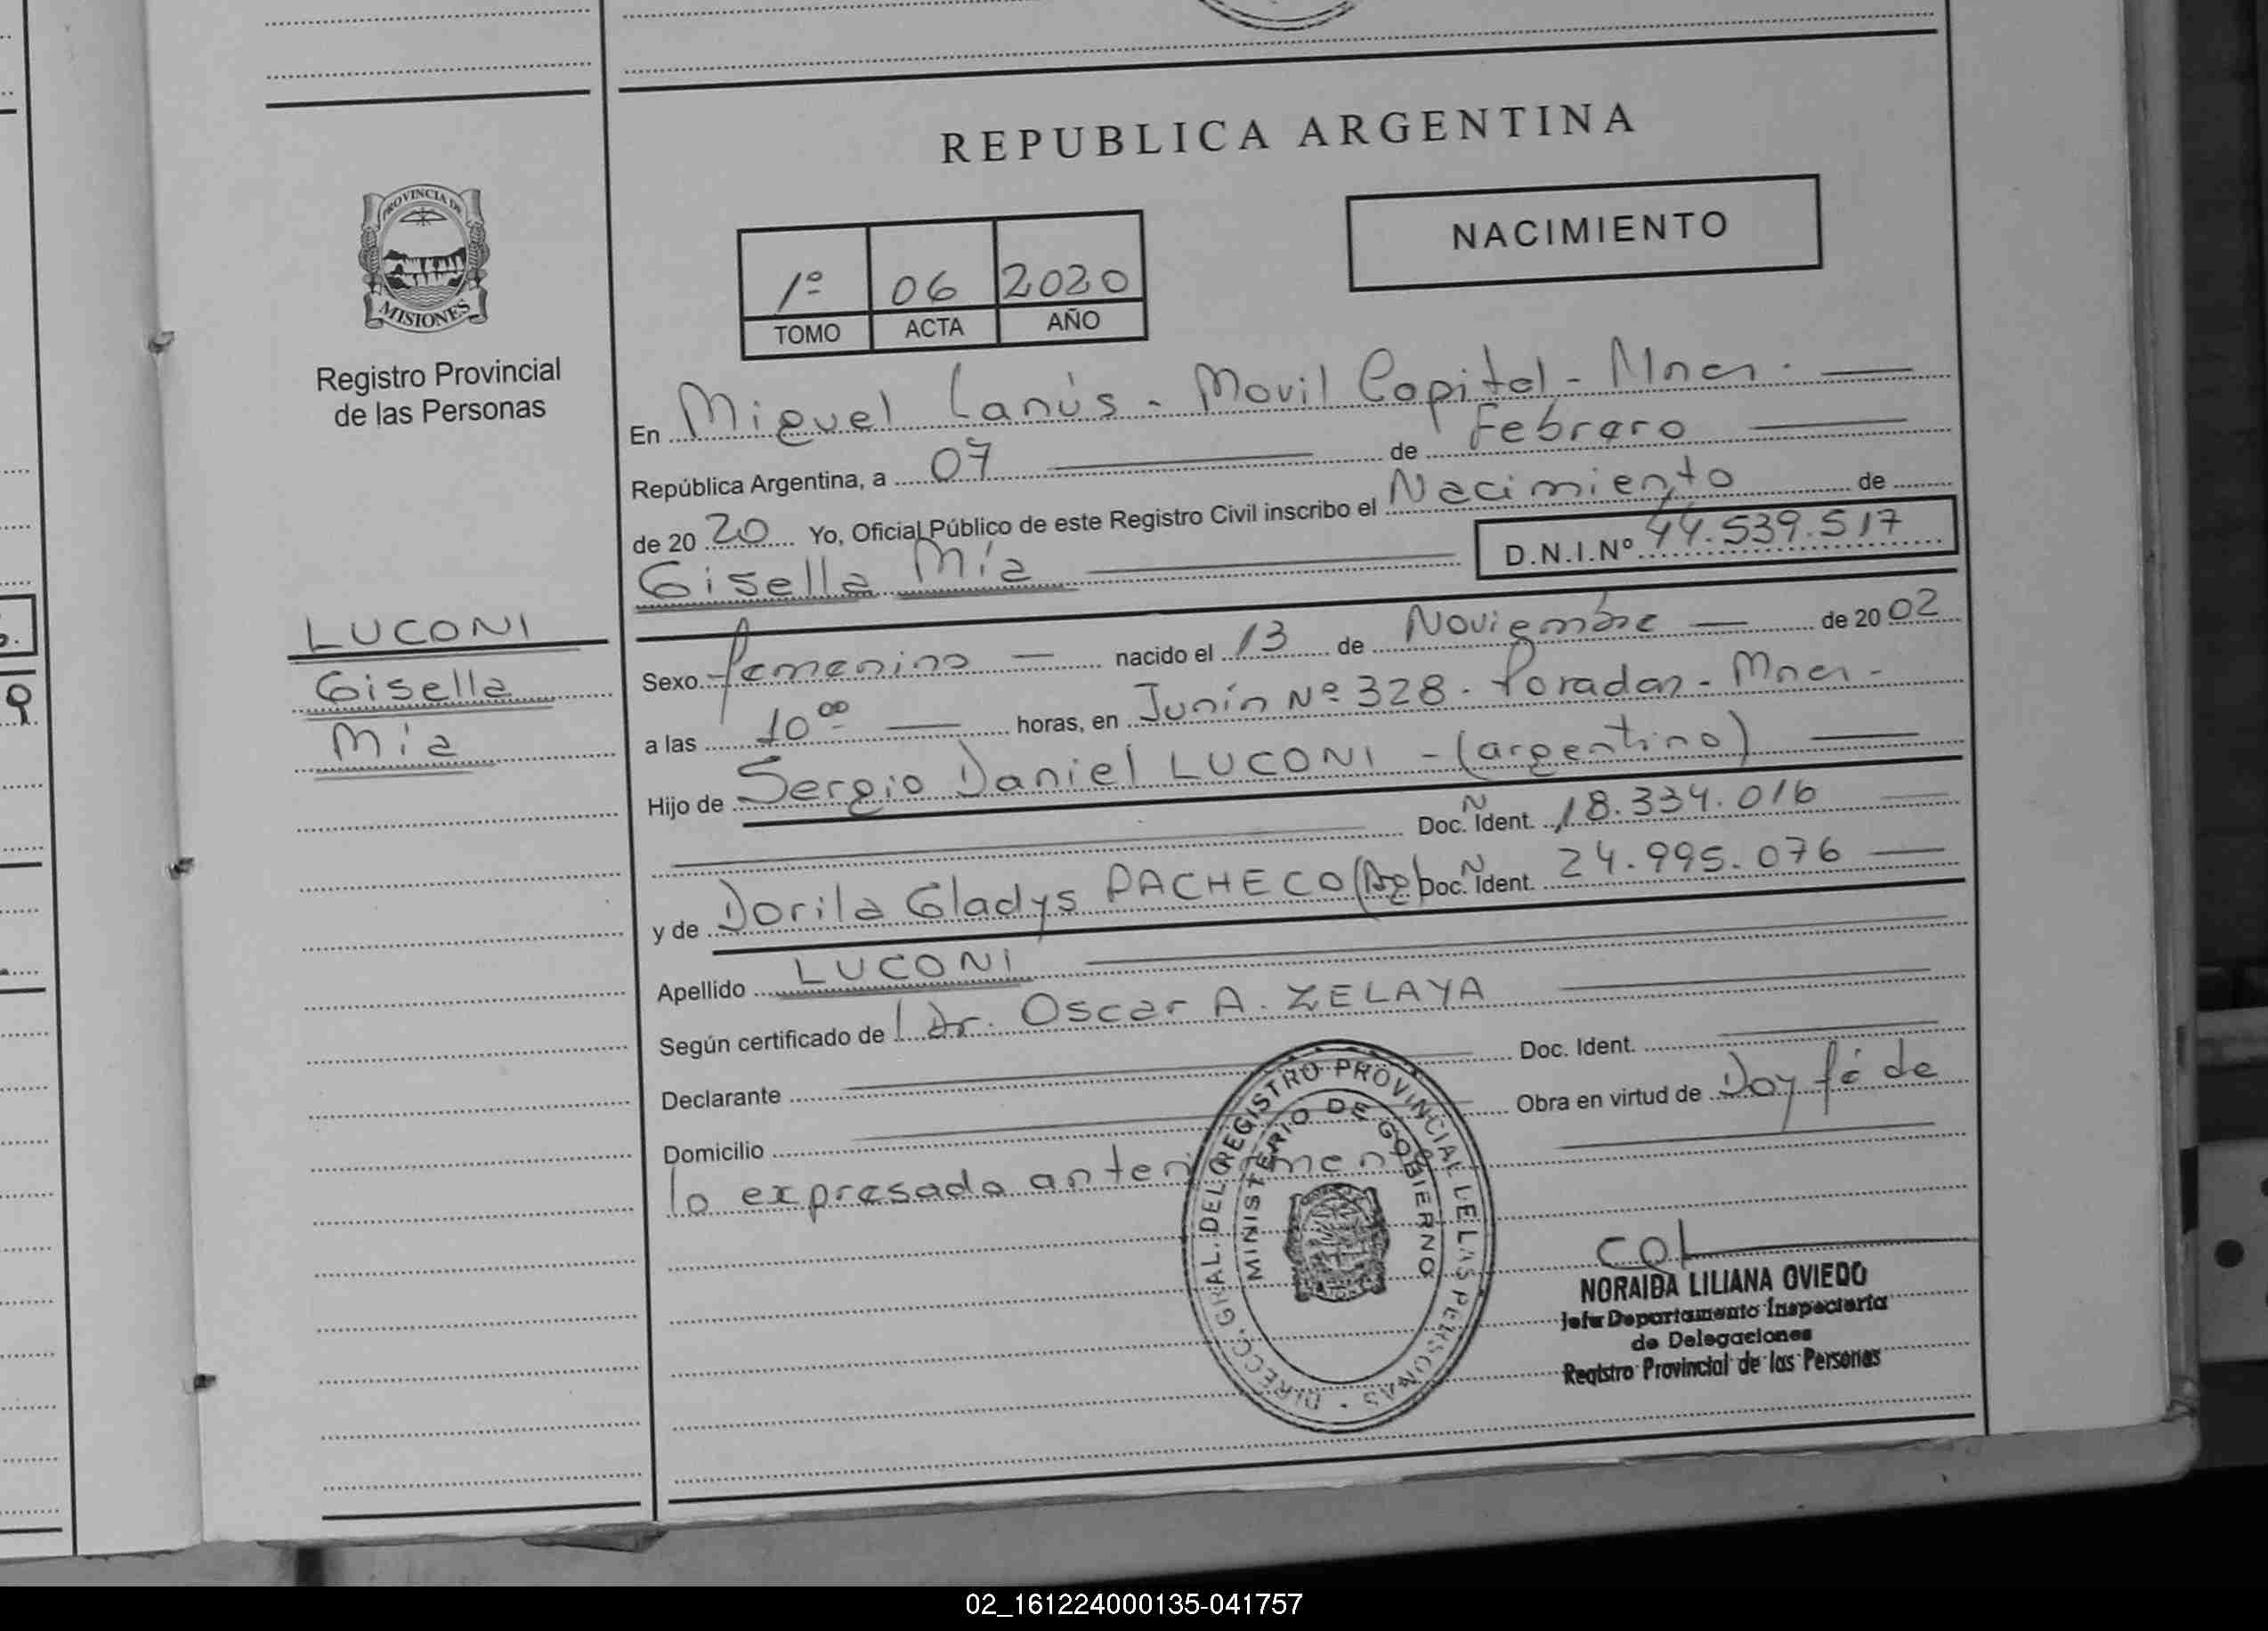 REPUBLICA ARGENTINA
PROVINCIA DE
MISIONES
Registro Provincial
de las Personas
NACIMIENTO
1º 06 2020
TOMO ACTA AÑO
En Miguel Lanús - Movil Capital - Mnes. —
República Argentina, a 07 — de Febrero —
de 20 20 Yo, Oficial Público de este Registro Civil inscribo el Nacimiento de
Gisella Mía — D.N.I.Nº 44.539.517
LUCONI
Gisella
Mía
Sexo femenino — nacido el 13 de Noviembre — de 20 02
a las 10⁰⁰ — horas, en Junín Nº 328 - Posadas - Mnes -
Hijo de Sergio Daniel LUCONI - (argentino) —
Doc. Ñ Ident. 18.334.016 —
y de Dorila Gladys PACHECO (Ag) Doc. Ñ Ident. 24.995.076 —
Apellido LUCONI —
Según certificado de Dr. Oscar A. ZELAYA —
Declarante — Doc. Ident. —
Domicilio — Obra en virtud de Doy fé de
lo expresado anteriormente —
DIRECC. GRAL. DEL REGISTRO PROVINCIAL DE LAS PERSONAS
MINISTERIO DE GOBIERNO
NORAIDA LILIANA OVIEDO
Jefe Departamento Inspectoria
de Delegaciones
Registro Provincial de las Personas
02_161224000135-041757